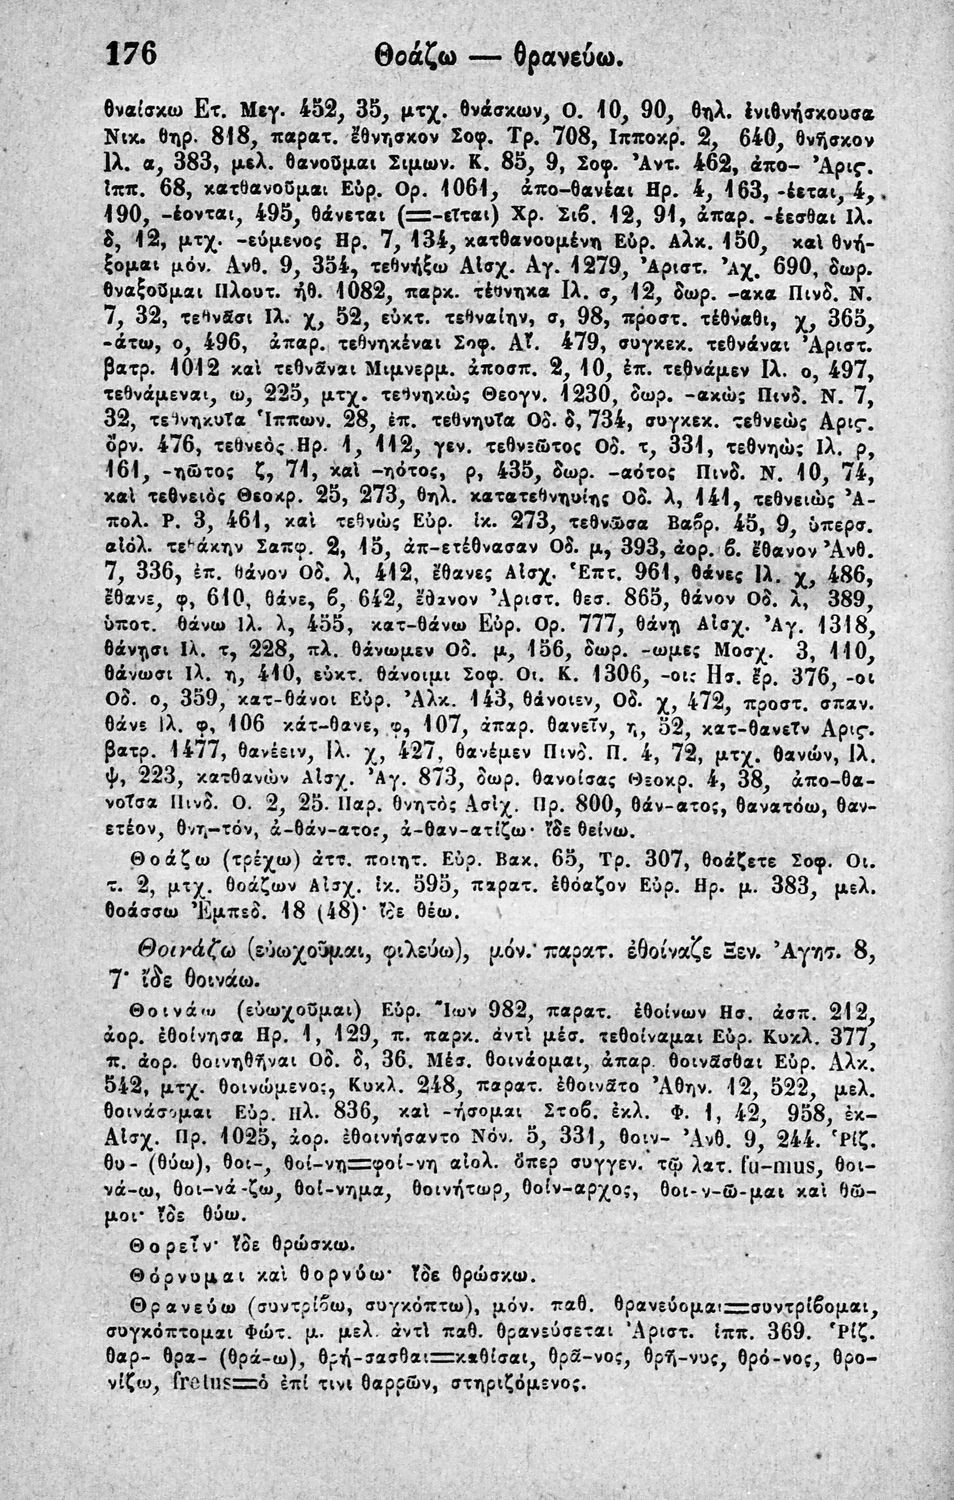 176 Θοάζω — θρανεύω.
θναίσκω Ετ. Μεγ. 452, 35, μτχ. θνάσκων, Ο. 10, 90, θηλ. ἐνιθνήσκουσα
Νικ. θηρ. 818, παρατ. ἔθνησκον Σοφ. Τρ. 708, Ιπποκρ. 2, 640, θνῆσκον
Ιλ. α, 383, μελ. θανοῦμαι Σιμων. Κ. 85, 9, Σοφ. Ἀντ. 462, ἀπο- Ἀρις.
ἱππ. 68, κατθανοῦμαι Εὐρ. Ορ. 1061, ἀπο-θανέαι Ηρ. 4, 163, -έεται, 4,
190, -έονται, 495, θάνεται (=-εῖται) Χρ. Σιβ. 12, 91, ἀπαρ. -έεσθαι Ιλ.
δ, 12, μτχ. -εύμενος Ηρ. 7, 134, κατθανουμένη Εὐρ. Αλκ. 150, καὶ θνή-
ξομαι μόν. Ανθ. 9, 354, τεθνήξω Αἰσχ. Αγ. 1279, Ἀριστ. Ἀχ. 690, δωρ.
θναξοῦμαι Πλουτ. ἠθ. 1082, παρκ. τέθνηκα Ιλ. σ, 12, δωρ. -ακα Πινδ. Ν.
7, 32, τεθνᾶσι Ιλ. χ, 52, εὐκτ. τεθναίην, σ, 98, προστ. τέθναθι, χ, 365,
-άτω, ο, 496, ἀπαρ. τεθνηκέναι Σοφ. Αἴ. 479, συγκεκ. τεθνάναι Ἀριστ.
βατρ. 1012 καὶ τεθνᾶναι Μιμνερμ. ἀποσπ. 2, 10, ἐπ. τεθνάμεν Ιλ. ο, 497,
τεθνάμεναι, ω, 225, μτχ. τεθνηκὼς Θεογν. 1230, δωρ. -ακὼς Πινδ. Ν. 7,
32, τεθνηκυῖα Ἱππων. 28, ἐπ. τεθνηυῖα Οδ. δ, 734, συγκεκ. τεθνεὼς Αρις.
ὄρν. 476, τεθνεὸς Ηρ. 1, 112, γεν. τεθνεῶτος Οδ. τ, 331, τεθνηὼς Ιλ. ρ,
161, -ηῶτος ζ, 71, καὶ -ηότος, ρ, 435, δωρ. -αότος Πινδ. Ν. 10, 74,
καὶ τεθνειὸς Θεοκρ. 25, 273, θηλ. κατατεθνηυίης Οδ. λ, 141, τεθνειὼς Ἀ-
πολ. Ρ. 3, 461, καὶ τεθνὼς Εὐρ. ἱκ. 273, τεθνῶσα Βαβρ. 45, 9, ὑπερσ.
αἰόλ. τεθάκην Σαπφ. 2, 15, ἀπ-ετέθνασαν Οδ. μ, 393, ἀορ. β. ἔθανον Ἀνθ.
7, 336, ἐπ. θάνον Οδ. λ, 412, ἔθανες Αἰσχ. Ἑπτ. 961, θάνες Ιλ. χ, 486,
ἔθανε, φ, 610, θάνε, β, 642, ἔθανον Ἀριστ. θεσ. 865, θάνον Οδ. λ, 389,
ὑποτ. θάνω Ιλ. λ, 455, κατ-θάνω Εὐρ. Ορ. 777, θάνῃ Αἰσχ. Ἀγ. 1318,
θάνῃσι Ιλ. τ, 228, πλ. θάνωμεν Οδ. μ, 156, δωρ. -ωμες Μοσχ. 3, 110,
θάνωσι Ιλ. η, 410, εὐκτ. θάνοιμι Σοφ. Οι. Κ. 1306, -οις Ησ. ἔρ. 376, -οι
Οδ. ο, 359, κατ-θάνοι Εὐρ. Ἀλκ. 143, θάνοιεν, Οδ. χ, 472, προστ. σπαν.
θάνε Ιλ. φ, 106 κάτ-θανε, φ, 107, ἀπαρ. θανεῖν, η, 52, κατ-θανεῖν Αρις.
βατρ. 1477, θανέειν, Ιλ. χ, 427, θανέμεν Πινδ. Π. 4, 72, μτχ. θανών, Ιλ.
ψ, 223, κατθανὼν Αἰσχ. Ἀγ. 873, δωρ. θανοίσας Θεοκρ. 4, 38, ἀπο-θα-
νοῖσα Πινδ. Ο. 2, 25. Παρ. θνητὸς Ασὶχ. Πρ. 800, θάν-ατος, θανατόω, θαν-
ετέον, θνη-τόν, ἀ-θάν-ατος, ἀ-θαν-ατίζω· ἴδε θείνω.
Θοάζω (τρέχω) ἀττ. ποιητ. Εὐρ. Βακ. 65, Τρ. 307, θοάζετε Σοφ. Οι.
τ. 2, μτχ. θοάζων Αἰσχ. ἱκ. 595, παρατ. ἐθόαζον Εὐρ. Ηρ. μ. 383, μελ.
θοάσσω Ἐμπεδ. 18 (48)· ἴδε θέω.
Θοινάζω (εὐωχοῦμαι, φιλεύω), μόν. παρατ. ἐθοίναζε Ξεν. Ἀγησ. 8,
7· ἴδε θοινάω.
Θοινάω (εὐωχοῦμαι) Εὐρ. Ἴων 982, παρατ. ἐθοίνων Ησ. ἀσπ. 212,
ἀορ. ἐθοίνησα Ηρ. 1, 129, π. παρκ. ἀντὶ μέσ. τεθοίναμαι Εὐρ. Κυκλ. 377,
π. ἀορ. θοινηθῆναι Οδ. δ, 36. Μέσ. θοινάομαι, ἀπαρ. θοινᾶσθαι Εὐρ. Αλκ.
542, μτχ. θοινώμενος, Κυκλ. 248, παρατ. ἐθοινᾶτο Ἀθην. 12, 522, μελ.
θοινάσομαι Εὐρ. Ηλ. 836, καὶ -ήσομαι Στοβ. ἐκλ. Φ. 1, 42, 958, ἐκ-
Αἰσχ. Πρ. 1025, ἀορ. ἐθοινήσαντο Νόν. 5, 331, θοιν- Ἀνθ. 9, 244. Ῥίζ.
θυ- (θύω), θοι-, θοί-νη=φοί-νη αἰολ. ὅπερ συγγεν. τῷ λατ. fu-mus, θοι-
νά-ω, θοι-νά-ζω, θοί-νημα, θοινήτωρ, θοίν-αρχος, θοι-ν-ῶ-μαι καὶ θῶ-
μοι· ἴδε θύω.
Θορεῖν· ἴδε θρώσκω.
Θόρνυμαι καὶ θορνύω· ἴδε θρώσκω.
Θρανεύω (συντρίβω, συγκόπτω), μόν. παθ. θρανεύομαι=συντρίβομαι,
συγκόπτομαι Φώτ. μ. μελ. ἀντὶ παθ. θρανεύσεται Ἀριστ. ἱππ. 369. Ῥίζ.
θαρ- θρα- (θρά-ω), θρή-σασθαι=καθίσαι, θρᾶ-νος, θρῆ-νυς, θρό-νος, θρο-
νίζω, fretus=ὁ ἐπί τινι θαρρῶν, στηριζόμενος.